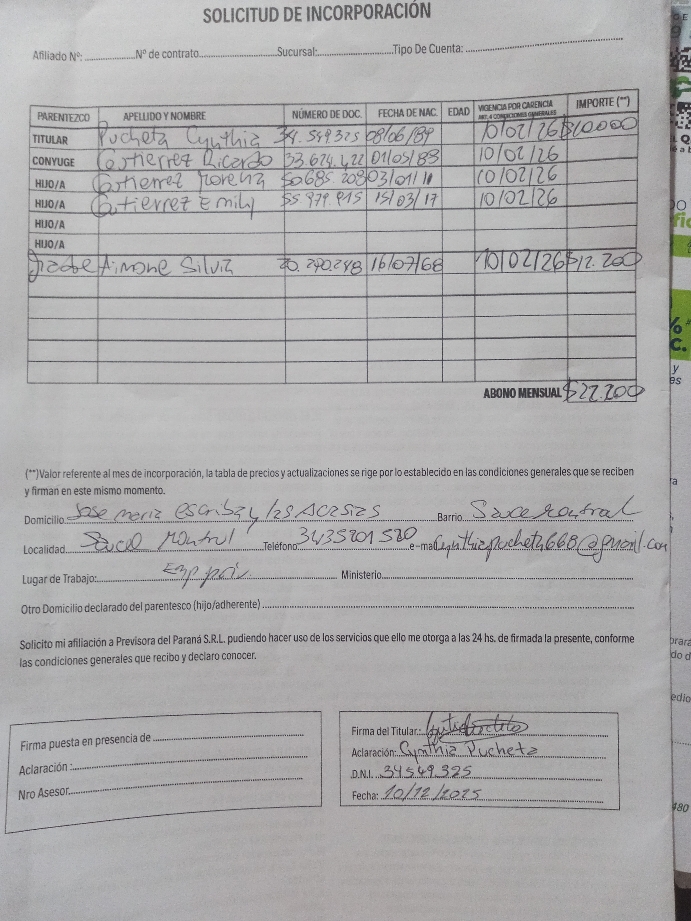 SOLICITUD DE INCORPORACIÓN
Afiliado Nº: Nº de contrato Sucursal: Tipo De Cuenta:
PARENTEZCO APELLIDO Y NOMBRE NÚMERO DE DOC. FECHA DE NAC. EDAD VIGENCIA POR CARENCIA ART. 4 CONDICIONES GENERALES IMPORTE (**)
TITULAR Pucheta Cynthia 34.549.325 08/06/89 10/02/26 $10.000
CONYUGE Gutierrez Ricardo 33.624.422 01/05/88 10/02/26
HIJO/A Gutierrez Morena 50685.208 03/01/11 10/02/26
HIJO/A Gutierrez Emily 55.979.915 15/03/17 10/02/26
HIJO/A
HIJO/A
Aimone Silvia 20.290.248 16/07/68 10/02/26 $12.200
ABONO MENSUAL $22.200
(**)Valor referente al mes de incorporación, la tabla de precios y actualizaciones se rige por lo establecido en las condiciones generales que se reciben
y firman en este mismo momento.
Domicilio Jose maria escriba y las Acacias Barrio Sauce montrul
Localidad Sauce Montrul Teléfono 3435201520 e-mail cynthiapucheta668@gmail.com
Lugar de Trabajo: Emp priv Ministerio
Otro Domicilio declarado del parentesco (hijo/adherente)
Solicito mi afiliación a Previsora del Paraná S.R.L. pudiendo hacer uso de los servicios que ello me otorga a las 24 hs. de firmada la presente, conforme
las condiciones generales que recibo y declaro conocer.
Firma puesta en presencia de
Aclaración :
Nro Asesor
Firma del Titular:
Aclaración: Cynthia Pucheta
D.N.I. 34549325
Fecha: 10/12/2025